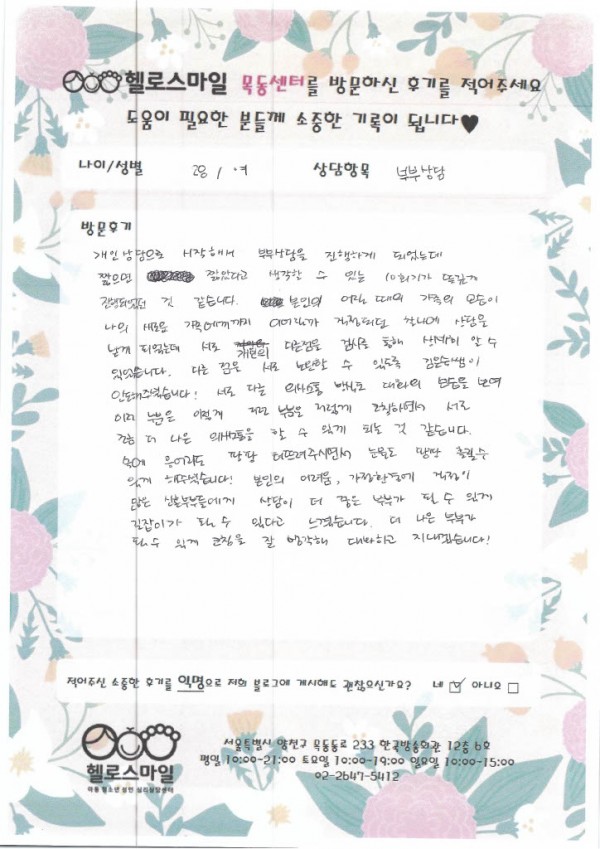 헬로스마일 목동센터를 방문하신 후기를 적어주세요
도움이 필요한 분들께 소중한 기록이 됩니다♥
나이/성별 28 / 여 상담항목 부부상담
방문후기
개인상담으로 시작해서 부부상담을 진행하게 되었는데
짧으면 짧았다고 생각할 수 있는 10회기가 뜻깊게
진행되었던 것 같습니다. 본인의 어린 때의 가족의 모습이
나의 새로운 가족에게까지 이어질까 걱정되던 찰나에 상담을
받게 되었는데 서로 개인의 다른점을 검사를 통해 상세히 알 수
있었습니다. 다른 점은 서로 보완할 수 있도록
인도해주셨습니다! 서로 다른 의사소통 방식도 대화의 모습을 보며
이런 부분은 이렇게 저런 부분은 저렇게 코칭하면서 서로
좀 더 나은 의사소통을 할 수 있게 되는 것 같습니다.
속에 응어리도 팡팡 터뜨려주시면서 눈물도 팡팡 흘릴수
있게 해주셨습니다! 본인의 어려움, 가정환경에 걱정이
많은 신혼부부들에게 상담이 더 좋은 부부가 될 수 있게
길잡이가 될 수 있다고 느꼈습니다. 더 나은 부부가
될 수 있게 코칭을 잘 생각해 대화하고 지내겠습니다!
적어주신 소중한 후기를 익명으로 저희 블로그에 게시해도 괜찮으신가요? 네 ☑ 아니요 □
헬로스마일
아동 청소년 성인 심리상담센터
서울특별시 양천구 목동동로 233 한국방송회관 12층 6호
평일 10:00-21:00 토요일 10:00-19:00 일요일 10:00-15:00
02-2647-5412